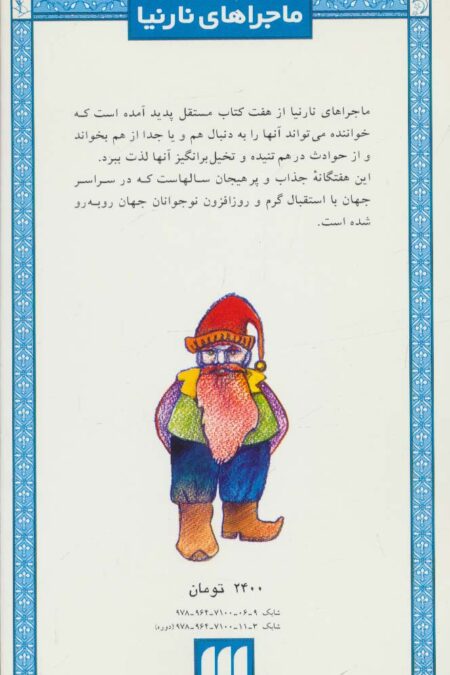 ماجراهای نارنیا
ماجراهای نارنیا از هفت کتاب مستقل پدید آمده است که
خواننده می‌تواند آنها را به دنبال هم و یا جدا از هم بخواند
و از حوادث درهم تنیده و تخیل‌برانگیز آنها لذت ببرد.
این هفتگانهٔ جذاب و پرهیجان سالهاست که در سراسر
جهان با استقبال گرم و روزافزون نوجوانان جهان روبه‌رو
شده است.
۲۴۰۰ تومان
شابک ۹-۰۶-۷۱۰۰-۹۶۴-۹۷۸
شابک ۳-۱۱-۷۱۰۰-۹۶۴-۹۷۸ (دوره)